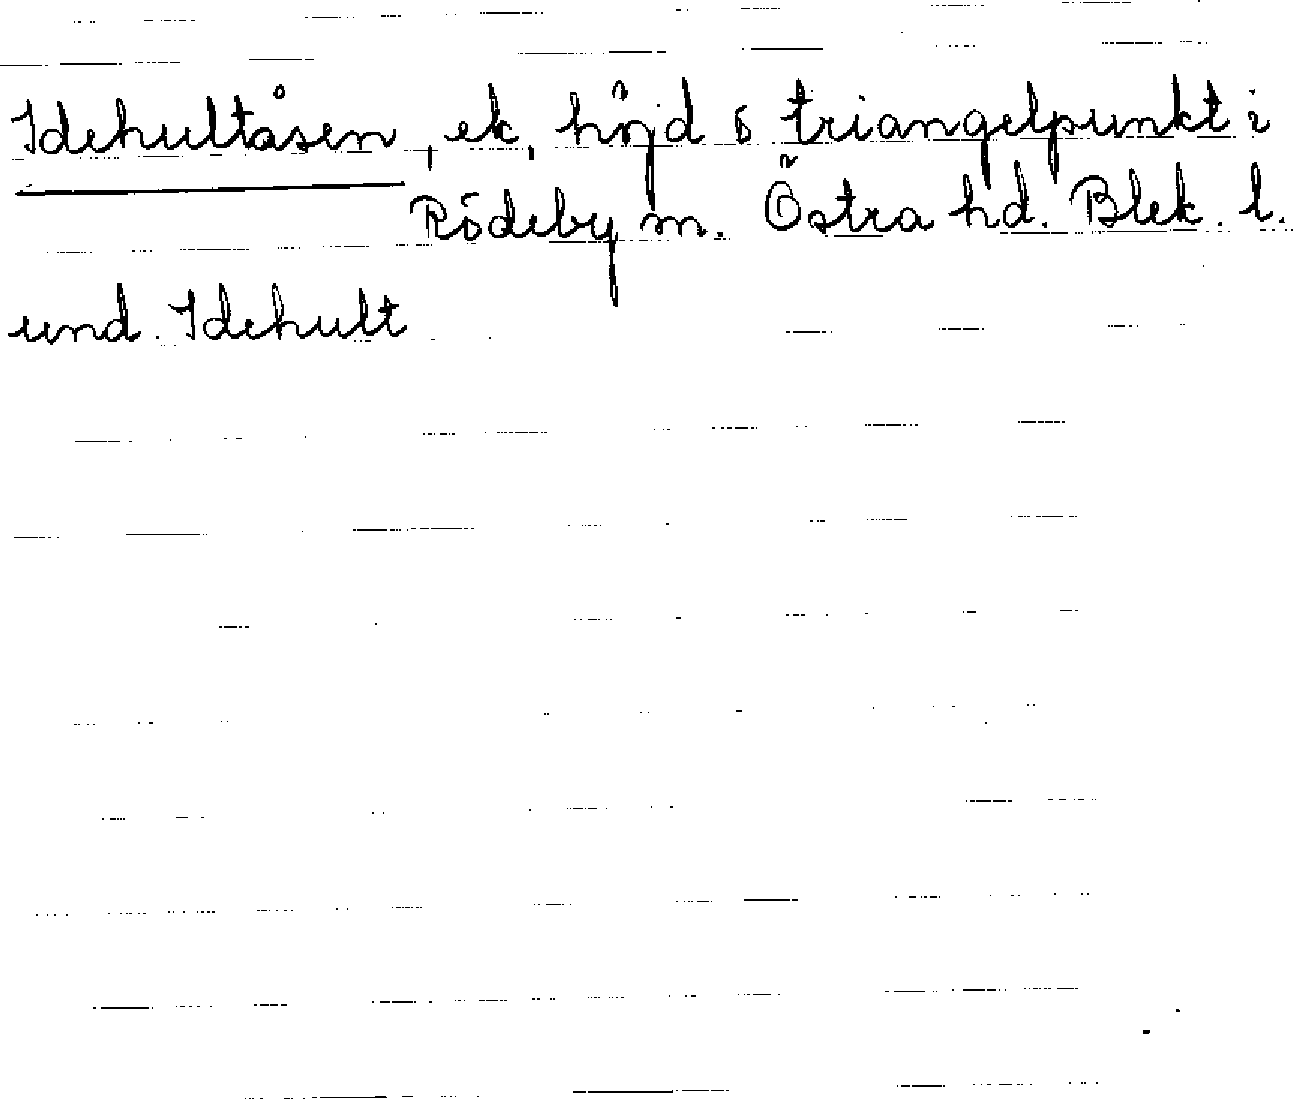 Idehultåsen, ek. höjd o triangelpunkt i
Rödeby sn. Östra hd. Blek. l.
und. Idehult